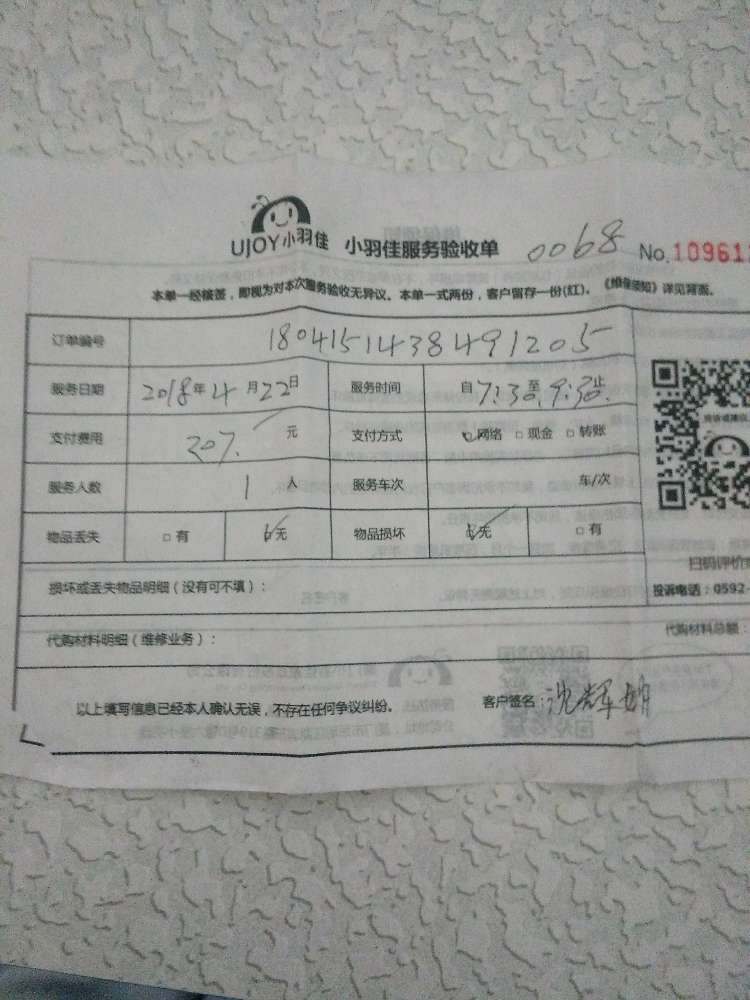 UJOY小羽佳 小羽佳服务验收单 0068 No.10961
本单一经核签，即视为对本次服务验收无异议。本单一式两份，客户留存一份(红)。《维保须知》详见背面。
订单编号 1804151438491205
服务日期 2018年4月22日 服务时间 自7:30至9:30止
支付费用 207. 元 支付方式 网络 □现金 □转账
服务人数 1 人 服务车次 车/次
物品丢失 □有 无 物品损坏 无 □有
扫码评价
损坏或丢失物品明细（没有可不填）： 投诉电话：0592-
代购材料明细（维修业务）： 代购材料总额：
以上填写信息已经本人确认无误，不存在任何争议纠纷。 客户签名：沈辉